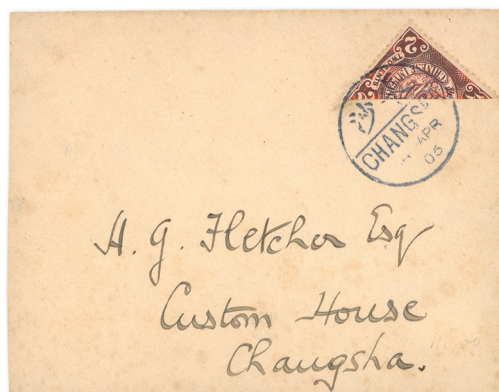 2
沙
CHANGS
APR
05
H. G. Fletcher Esq
Custom House
Changsha.